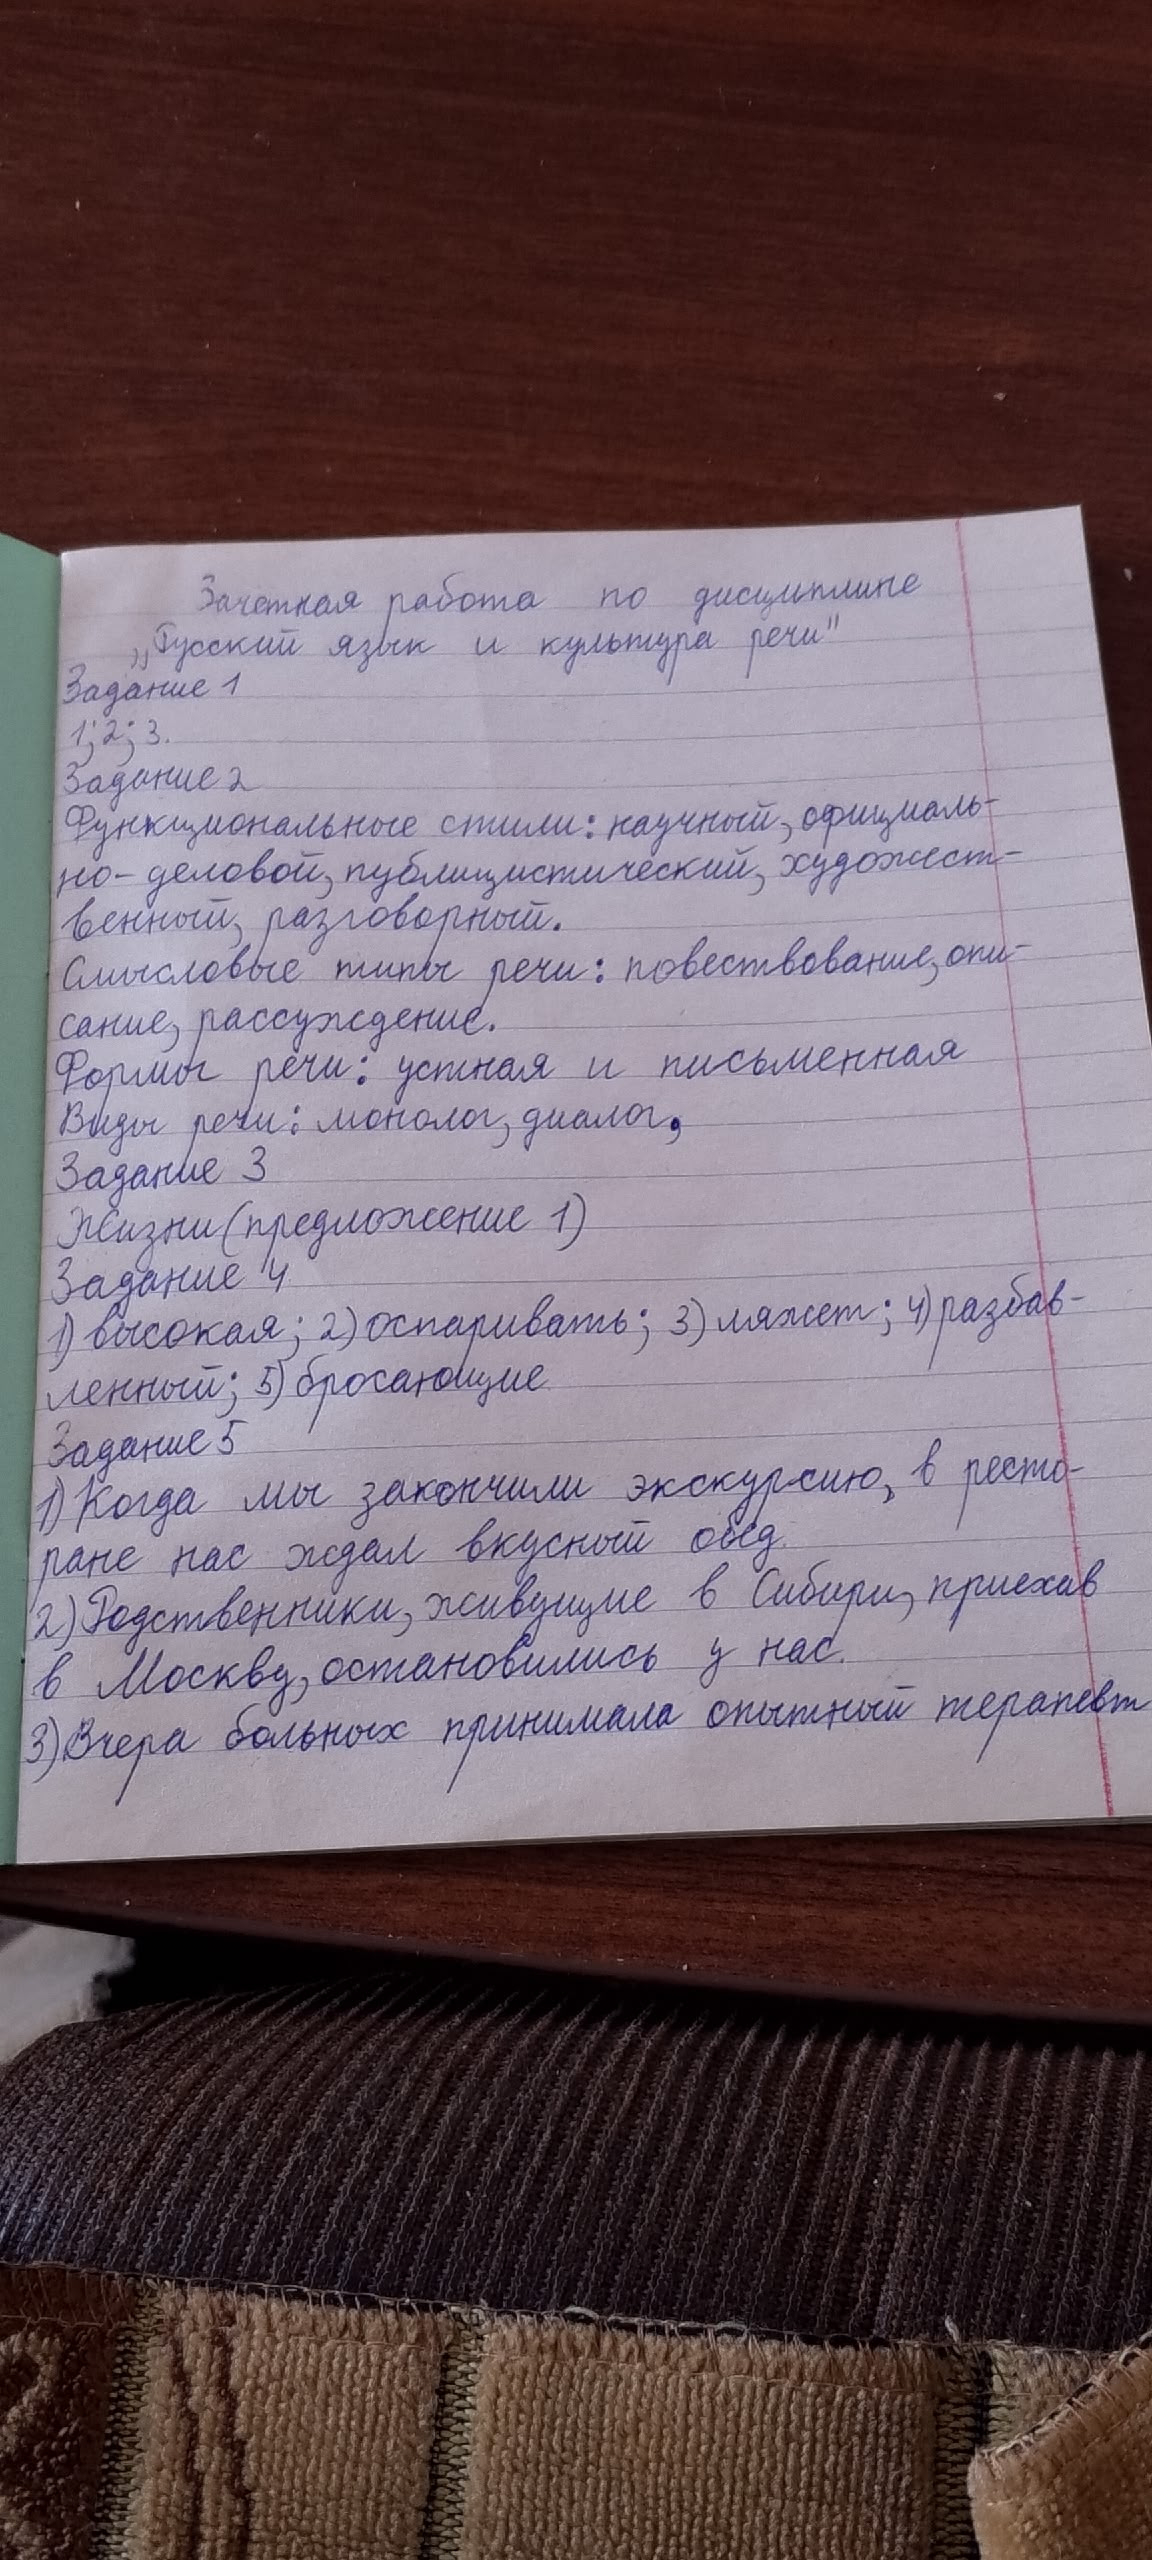 Зачетная работа по дисциплине
„Русский язык и культура речи"
Задание 1
1; 2; 3.
Задание 2
Функциональные стили: научный, официаль-
но-деловой, публицистический, художест-
венный, разговорный.
Смысловые типы речи: повествование, опи-
сание, рассуждение.
Формы речи: устная и письменная
Виды речи: монолог, диалог.
Задание 3
Жизни (предложение 1)
Задание 4
1) высокая; 2) оспаривать; 3) ляжет; 4) разбав-
ленный; 5) бросающие
Задание 5
1) Когда мы закончили экскурсию, в ресто-
ране нас ждал вкусный обед.
2) Родственники, живущие в Сибири, приехав
в Москву, остановились у нас.
3) Вчера больных принимала опытный терапевт